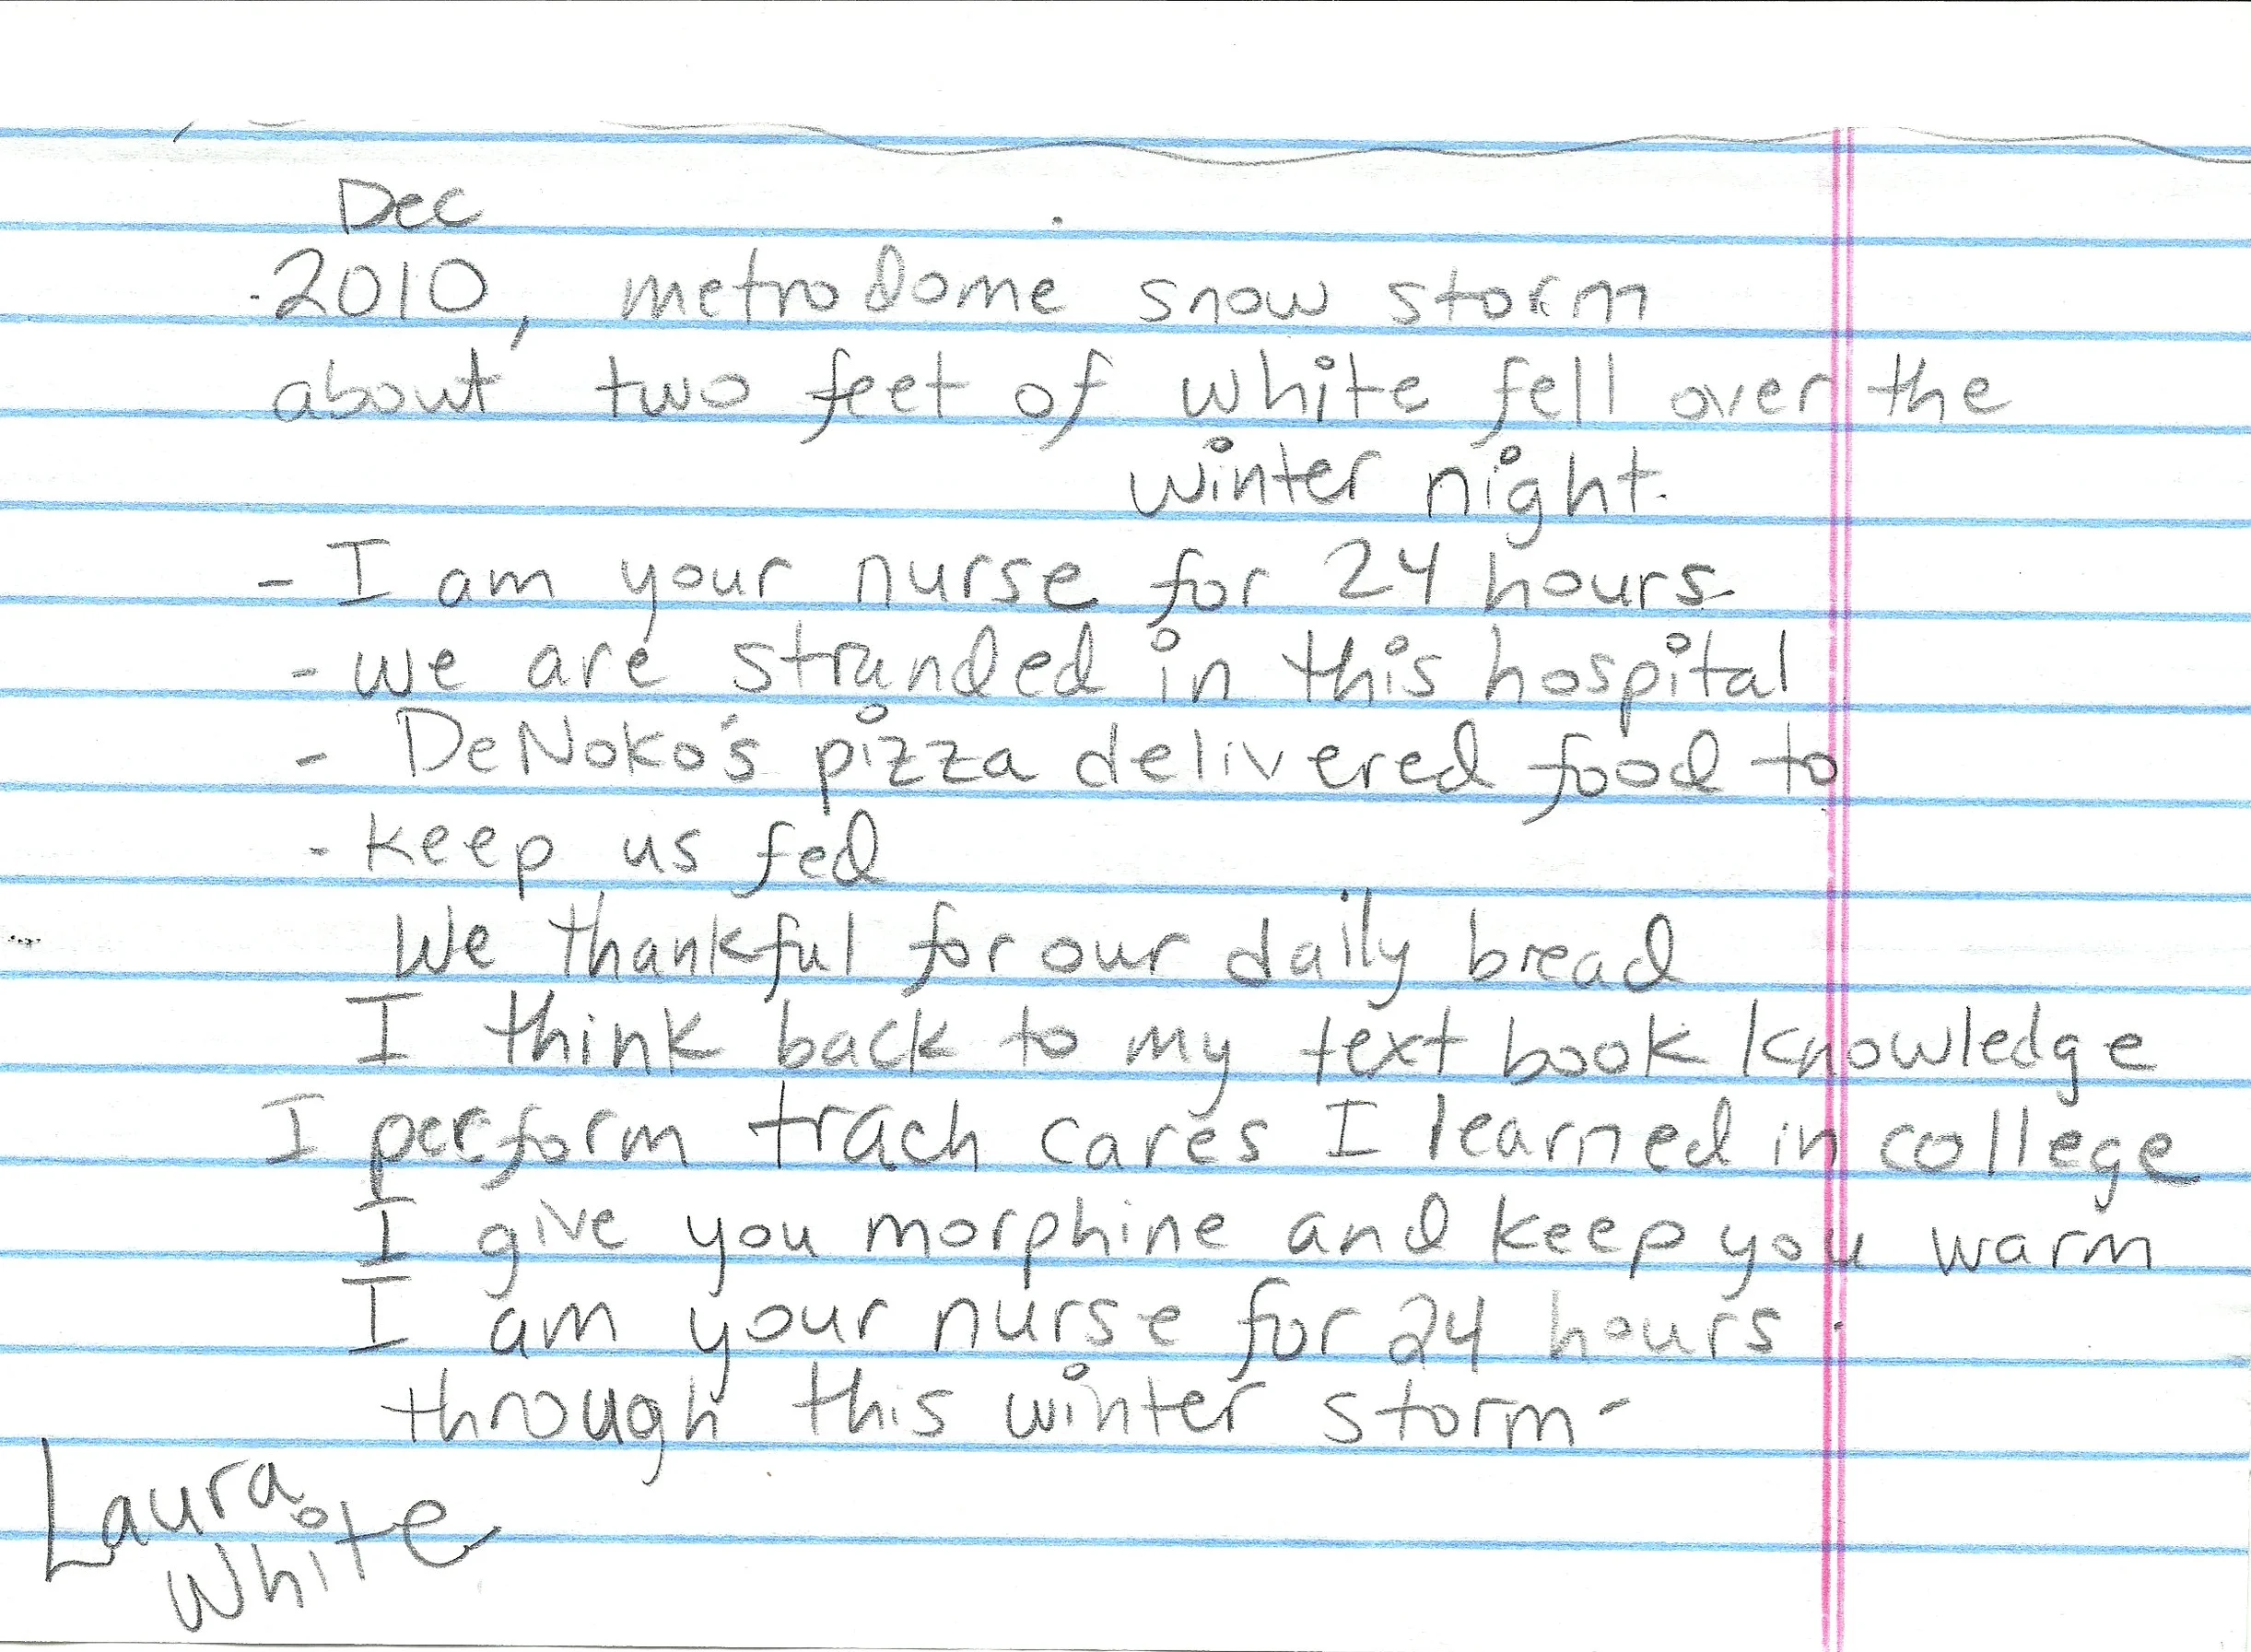 Dec
2010, metroDome snow storm
about two feet of white fell over the
winter night.
- I am your nurse for 24 hours
- we are stranded in this hospital
- DeNoko's pizza delivered food to
- keep us fed
We thankful for our daily bread
I think back to my text book knowledge
I perform trach cares I learned in college
I give you morphine and keep you warm
I am your nurse for 24 hours.
through this winter storm-
Laura
White